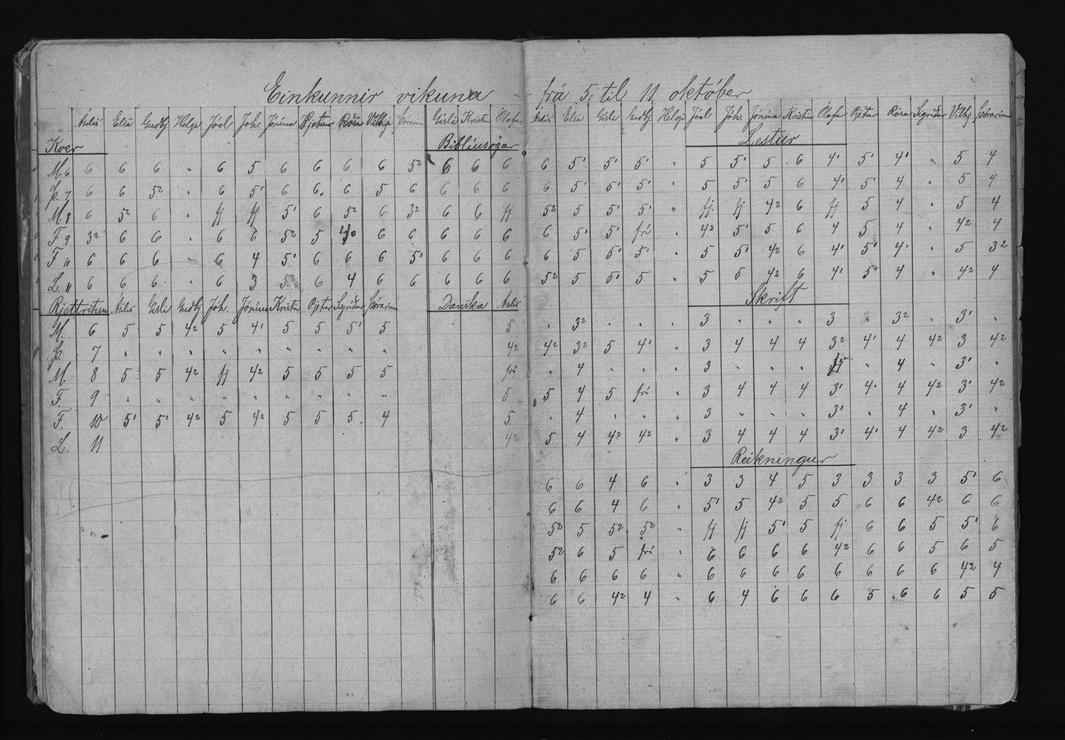 Einkunnir vikuna frá 5. til 11 október
Aulis Elín Guðbj Helga Jóel Jóh. Jónína Pjetur Rósa Vilhj Þórarinn Gísli Kristín Ólafur
Kver Biblíusögur
M. 6 6 6 6 " 6 6 5 6 6 6 6 5² 6 6 6
Þ. 7 6 6 5² " 6 5' 6 6 6 5 6 6 6 6
M 8 6 5² 6 " fj fj 5' 6 5² 6 3² 6 6 fj
F 9 3² 6 6 " 6 6 5² 5 4 6 6 6 6 6
F 10 6 6 6 6 4 5' 6 6 6 5' 6 6 6
L. 11 6 6 6 " 6 3 5 6 4 6 6 6 6 6
Rjettritun Aulis Gísli Guðbj Jóh. Jónína Kristín Pjetur Sigríður Þórarinn Danska Aulis
M. 6 5 5 4² 5 4' 5 5 5' 5 5
Þ. 7 " " " " " " " " " 4²
M. 8 5 5 4² fj 4² 5 5 5 5 frí
F. 9 " " " " " " " " " 5
F. 10 5' 5' 4² 5 4² 5 5 5 4 5
L. 11 4²
Aulis Elín Gísli Guðbj Helga Jóel Jóh. Jónína Kristín Ólafur Pjetur Rósa Sigríður Vilhj Þórarinn
Lestur
6 5' 5' 5' " 5 5' 5 6 4' 5' 4' 5 4
6 5' 5' 5' " 5 5' 5 6 4' 5' 4 " 5 4
5² 5 5' 5' " fj. fj 4² 6 fj 5 4 " 5 4
6 5' 5' frí " 4² 5' 5 6 4 5 4 " 4² 4
6 6 5' 5' " 5 5' 4² 6 4' 5' 4' " 5 3²
5² 5 5' 5 " 5 5 4² 6 4' 5' 4 " 4² 4
Skrift
" 3² " " " 3 " " " 3 " 3² " 3' "
4² 3² 5 4' " 3 4 4 4 3² 4' 4 4² 3 4²
" 4 " " " 3 " " " fj " 4 " 3' "
5 4 5 frí " 3 4 4 4 3' 4' 4 4² 3' 4²
" 4 " " " 3 " " " 3' " 4 " 3' "
5 4 4² 4² " 3 4 4 4 3' 4' 4 4² 3 4²
Reikningur
6 6 4 6 " 3 3 4 5 3 3 3 3 5' 6
6 6 4 6 " 5' 5 4² 5 5 6 6 4² 6 6
5² 5 5² 5² " fj fj 5' 5 fj 6 6 5 5' 6
5² 6 5 frí " 6 6 6 6 4² 6 6 5 6 5
6 6 6 6 " 6 6 6 6 6 6 6 6 4² 4
6 6 4² 4 " 6 4 6 6 6 5 6 6 5 5